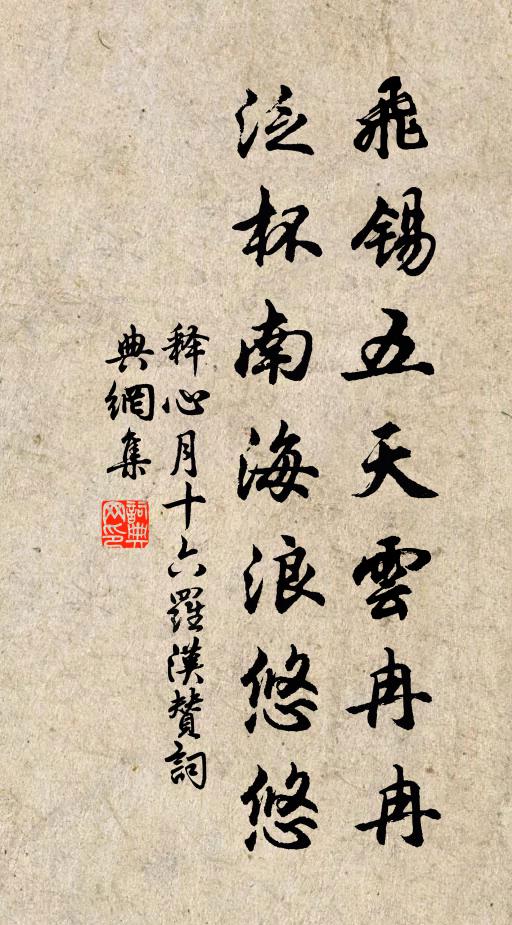 飛錫五天雲冉冉
泛杯南海浪悠悠
释心月十六羅漢贊詞
典網集
詞典網印